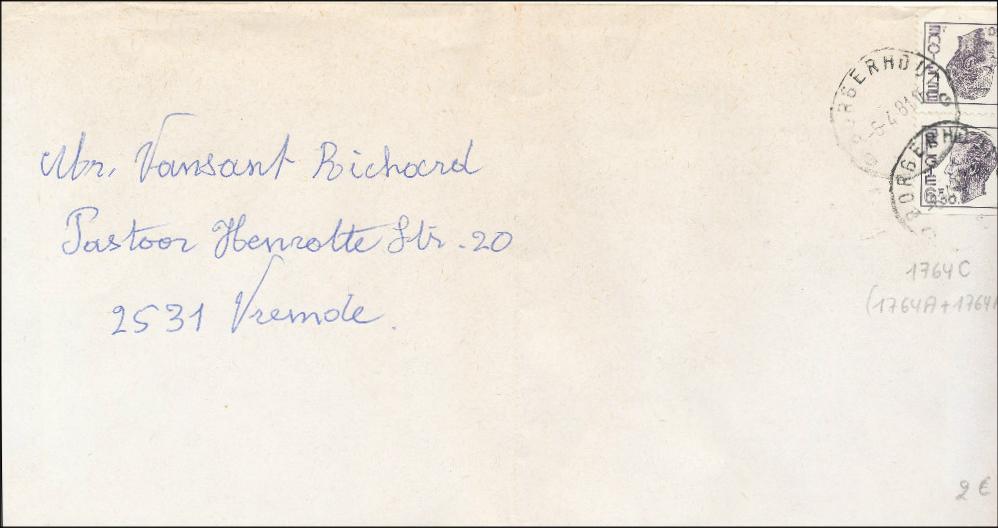 Mr. Vansant Richard
Pastoor Henrotte Str. 20
2531 Vremde.
BORGERHOU
-6-4-81
BORGERHO
BELGIE
1764C
(1764A + 1764
2 €